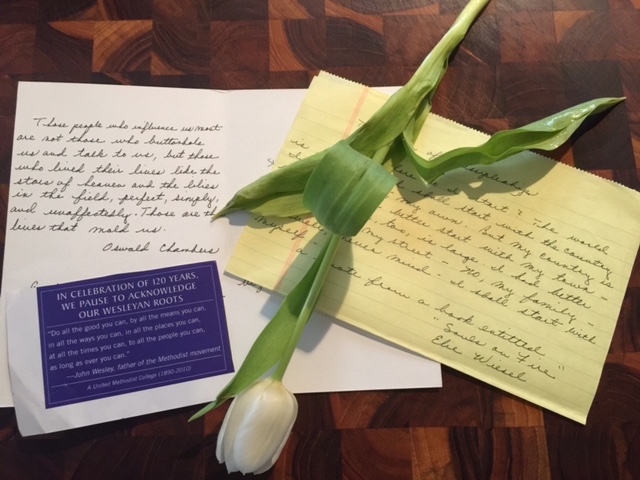 Those people who influence us most
are not those who buttonhole
us and talk to us, but those
who lived their lives like the
stars of heaven and the lilies
in the field, perfect, simply,
and unaffectedly. Those are the
lives that mold us.
Oswald Chambers
IN CELEBRATION OF 120 YEARS,
WE PAUSE TO ACKNOWLEDGE
OUR WESLEYAN ROOTS
"Do all the good you can, by all the means you can,
in all the ways you can, in all the places you can,
at all the times you can, to all the people you can,
as long as ever you can."
—John Wesley, father of the Methodist movement
A United Methodist College (1890-2010)
is
I start? The world
shall start with the country
my own. But my country is
town is large. I had better
better start with my town -
my street - no, my family -
myself - never mind - I shall start with
a quote from a book entitled
Souls on Fire"
Elie Wiesel